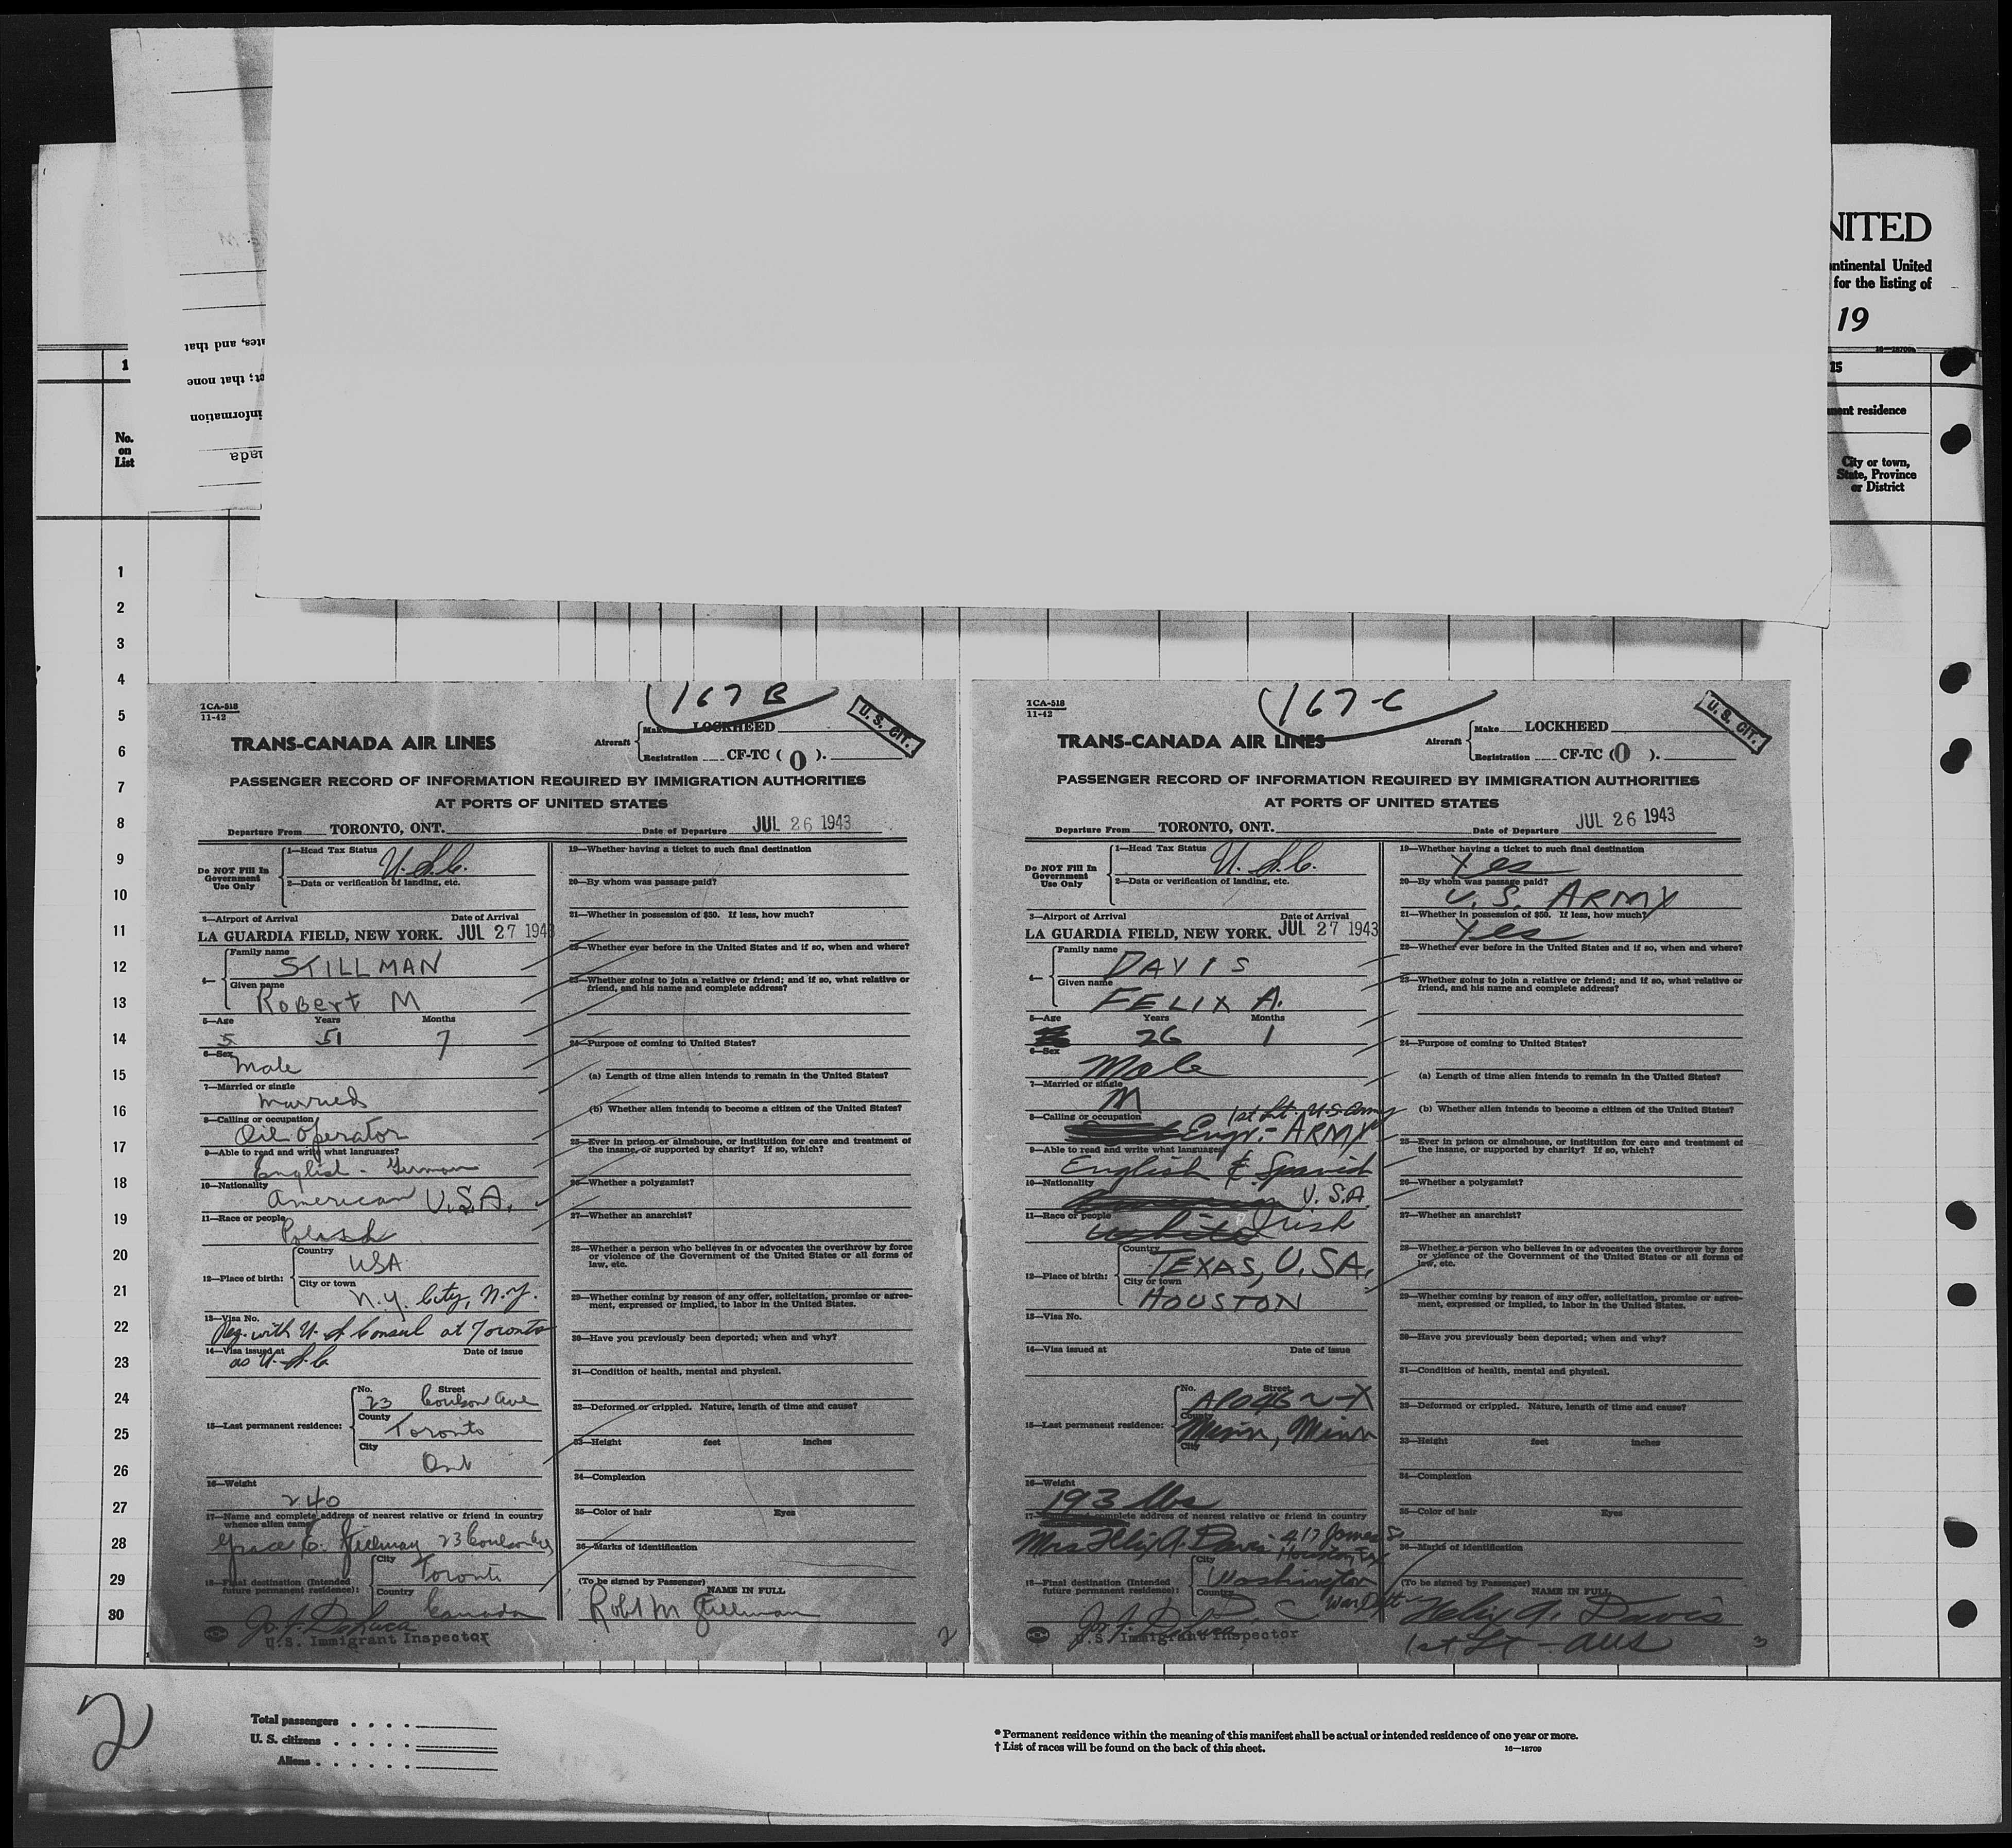 NITED
ntinental United
for the listing of
19
16—18709
1
15
ates, and that
ct; that none
informati
nada
ment residence
No.
on
List
City or town,
State, Province
or District
1
2
3
4
5
6
7
8
9
10
11
12
13
14
15
16
17
18
19
20
21
22
23
24
25
26
27
28
29
30
167 B
TCA-518
11-42
U. S. CIT.
TRANS-CANADA AIR LINES
Aircraft
Make LOCKHEED
Registration CF-TC ( O ).
PASSENGER RECORD OF INFORMATION REQUIRED BY IMMIGRATION AUTHORITIES
AT PORTS OF UNITED STATES
Departure From TORONTO, ONT. Date of Departure JUL 26 1943
Do NOT Fill In
Government
Use Only
1—Head Tax Status U.S.C.
2—Data or verification of landing, etc.
3—Airport of Arrival Date of Arrival
LA GUARDIA FIELD, NEW YORK. JUL 27 1943
4—
Family name
STILLMAN
Given name
Robert M
5—Age Years Months
5 51 7
6—Sex
Male
7—Married or single
Married
8—Calling or occupation
Oil Operator
9—Able to read and write what languages?
English - German
10—Nationality
American U.S.A.
11—Race or people
Polish
12—Place of birth:
Country
USA
City or town
N.Y. City, N.Y.
13—Visa No.
Reg. with U.S. Consul at Toronto
14—Visa issued at Date of issue
as U.S.C.
15—Last permanent residence:
No. Street
23 Coulson Ave
County
Toronto
City
Ont
16—Weight
240
17—Name and complete address of nearest relative or friend in country
whence alien came
Grace E. Stillman 23 Coulson Ave
18—Final destination (Intended
future permanent residence):
City
Toronto
Country
Canada
J. F. DeLuca
U.S. Immigrant Inspector
19—Whether having a ticket to such final destination
20—By whom was passage paid?
21—Whether in possession of $50. If less, how much?
22—Whether ever before in the United States and if so, when and where?
23—Whether going to join a relative or friend; and if so, what relative or
friend, and his name and complete address?
24—Purpose of coming to United States?
(a) Length of time alien intends to remain in the United States?
(b) Whether alien intends to become a citizen of the United States?
25—Ever in prison or almshouse, or institution for care and treatment of
the insane, or supported by charity? If so, which?
26—Whether a polygamist?
27—Whether an anarchist?
28—Whether a person who believes in or advocates the overthrow by force
or violence of the Government of the United States or all forms of
law, etc.
29—Whether coming by reason of any offer, solicitation, promise or agree-
ment, expressed or implied, to labor in the United States.
30—Have you previously been deported; when and why?
31—Condition of health, mental and physical.
32—Deformed or crippled. Nature, length of time and cause?
33—Height feet inches
34—Complexion
35—Color of hair Eyes
36—Marks of identification
(To be signed by Passenger)
NAME IN FULL
Robt M Stillman
2
167-C
TCA-518
11-42
U. S. CIT.
TRANS-CANADA AIR LINES
Aircraft
Make LOCKHEED
Registration CF-TC ( O ).
PASSENGER RECORD OF INFORMATION REQUIRED BY IMMIGRATION AUTHORITIES
AT PORTS OF UNITED STATES
Departure From TORONTO, ONT. Date of Departure JUL 26 1943
Do NOT Fill In
Government
Use Only
1—Head Tax Status U.S.C.
2—Data or verification of landing, etc.
3—Airport of Arrival Date of Arrival
LA GUARDIA FIELD, NEW YORK. JUL 27 1943
4—
Family name
DAVIS
Given name
FELIX A.
5—Age Years Months
26 1
6—Sex
Male
7—Married or single
M
8—Calling or occupation 1st Lt. U.S. Army
Engr.- ARMY
9—Able to read and write what languages?
English & Spanish
10—Nationality
U.S.A
11—Race or people
white Irish
12—Place of birth:
Country
TEXAS, U.S.A.
City or town
HOUSTON
13—Visa No.
14—Visa issued at Date of issue
15—Last permanent residence:
No. Street
APO 462-X
County
Minn, Minn
City
16—Weight
193 lbs
17— complete address of nearest relative or friend in country
Mrs Felix A. Davis - 417 James St
Houston, Tex
18—Final destination (Intended
future permanent residence):
City
Washington
Country
D. C War Dept
J. F. DeLuca
U.S. Immigrant Inspector
19—Whether having a ticket to such final destination
Yes
20—By whom was passage paid?
U.S. ARMY
21—Whether in possession of $50. If less, how much?
Yes
22—Whether ever before in the United States and if so, when and where?
23—Whether going to join a relative or friend; and if so, what relative or
friend, and his name and complete address?
24—Purpose of coming to United States?
(a) Length of time alien intends to remain in the United States?
(b) Whether alien intends to become a citizen of the United States?
25—Ever in prison or almshouse, or institution for care and treatment of
the insane, or supported by charity? If so, which?
26—Whether a polygamist?
27—Whether an anarchist?
28—Whether a person who believes in or advocates the overthrow by force
or violence of the Government of the United States or all forms of
law, etc.
29—Whether coming by reason of any offer, solicitation, promise or agree-
ment, expressed or implied, to labor in the United States.
30—Have you previously been deported; when and why?
31—Condition of health, mental and physical.
32—Deformed or crippled. Nature, length of time and cause?
33—Height feet inches
34—Complexion
35—Color of hair Eyes
36—Marks of identification
(To be signed by Passenger)
NAME IN FULL
Felix A. Davis
1st Lt - AUS
3
2
Total passengers . . . .
U. S. citizens . . . . .
Aliens . . . . . .
* Permanent residence within the meaning of this manifest shall be actual or intended residence of one year or more.
† List of races will be found on the back of this sheet.
16—18709